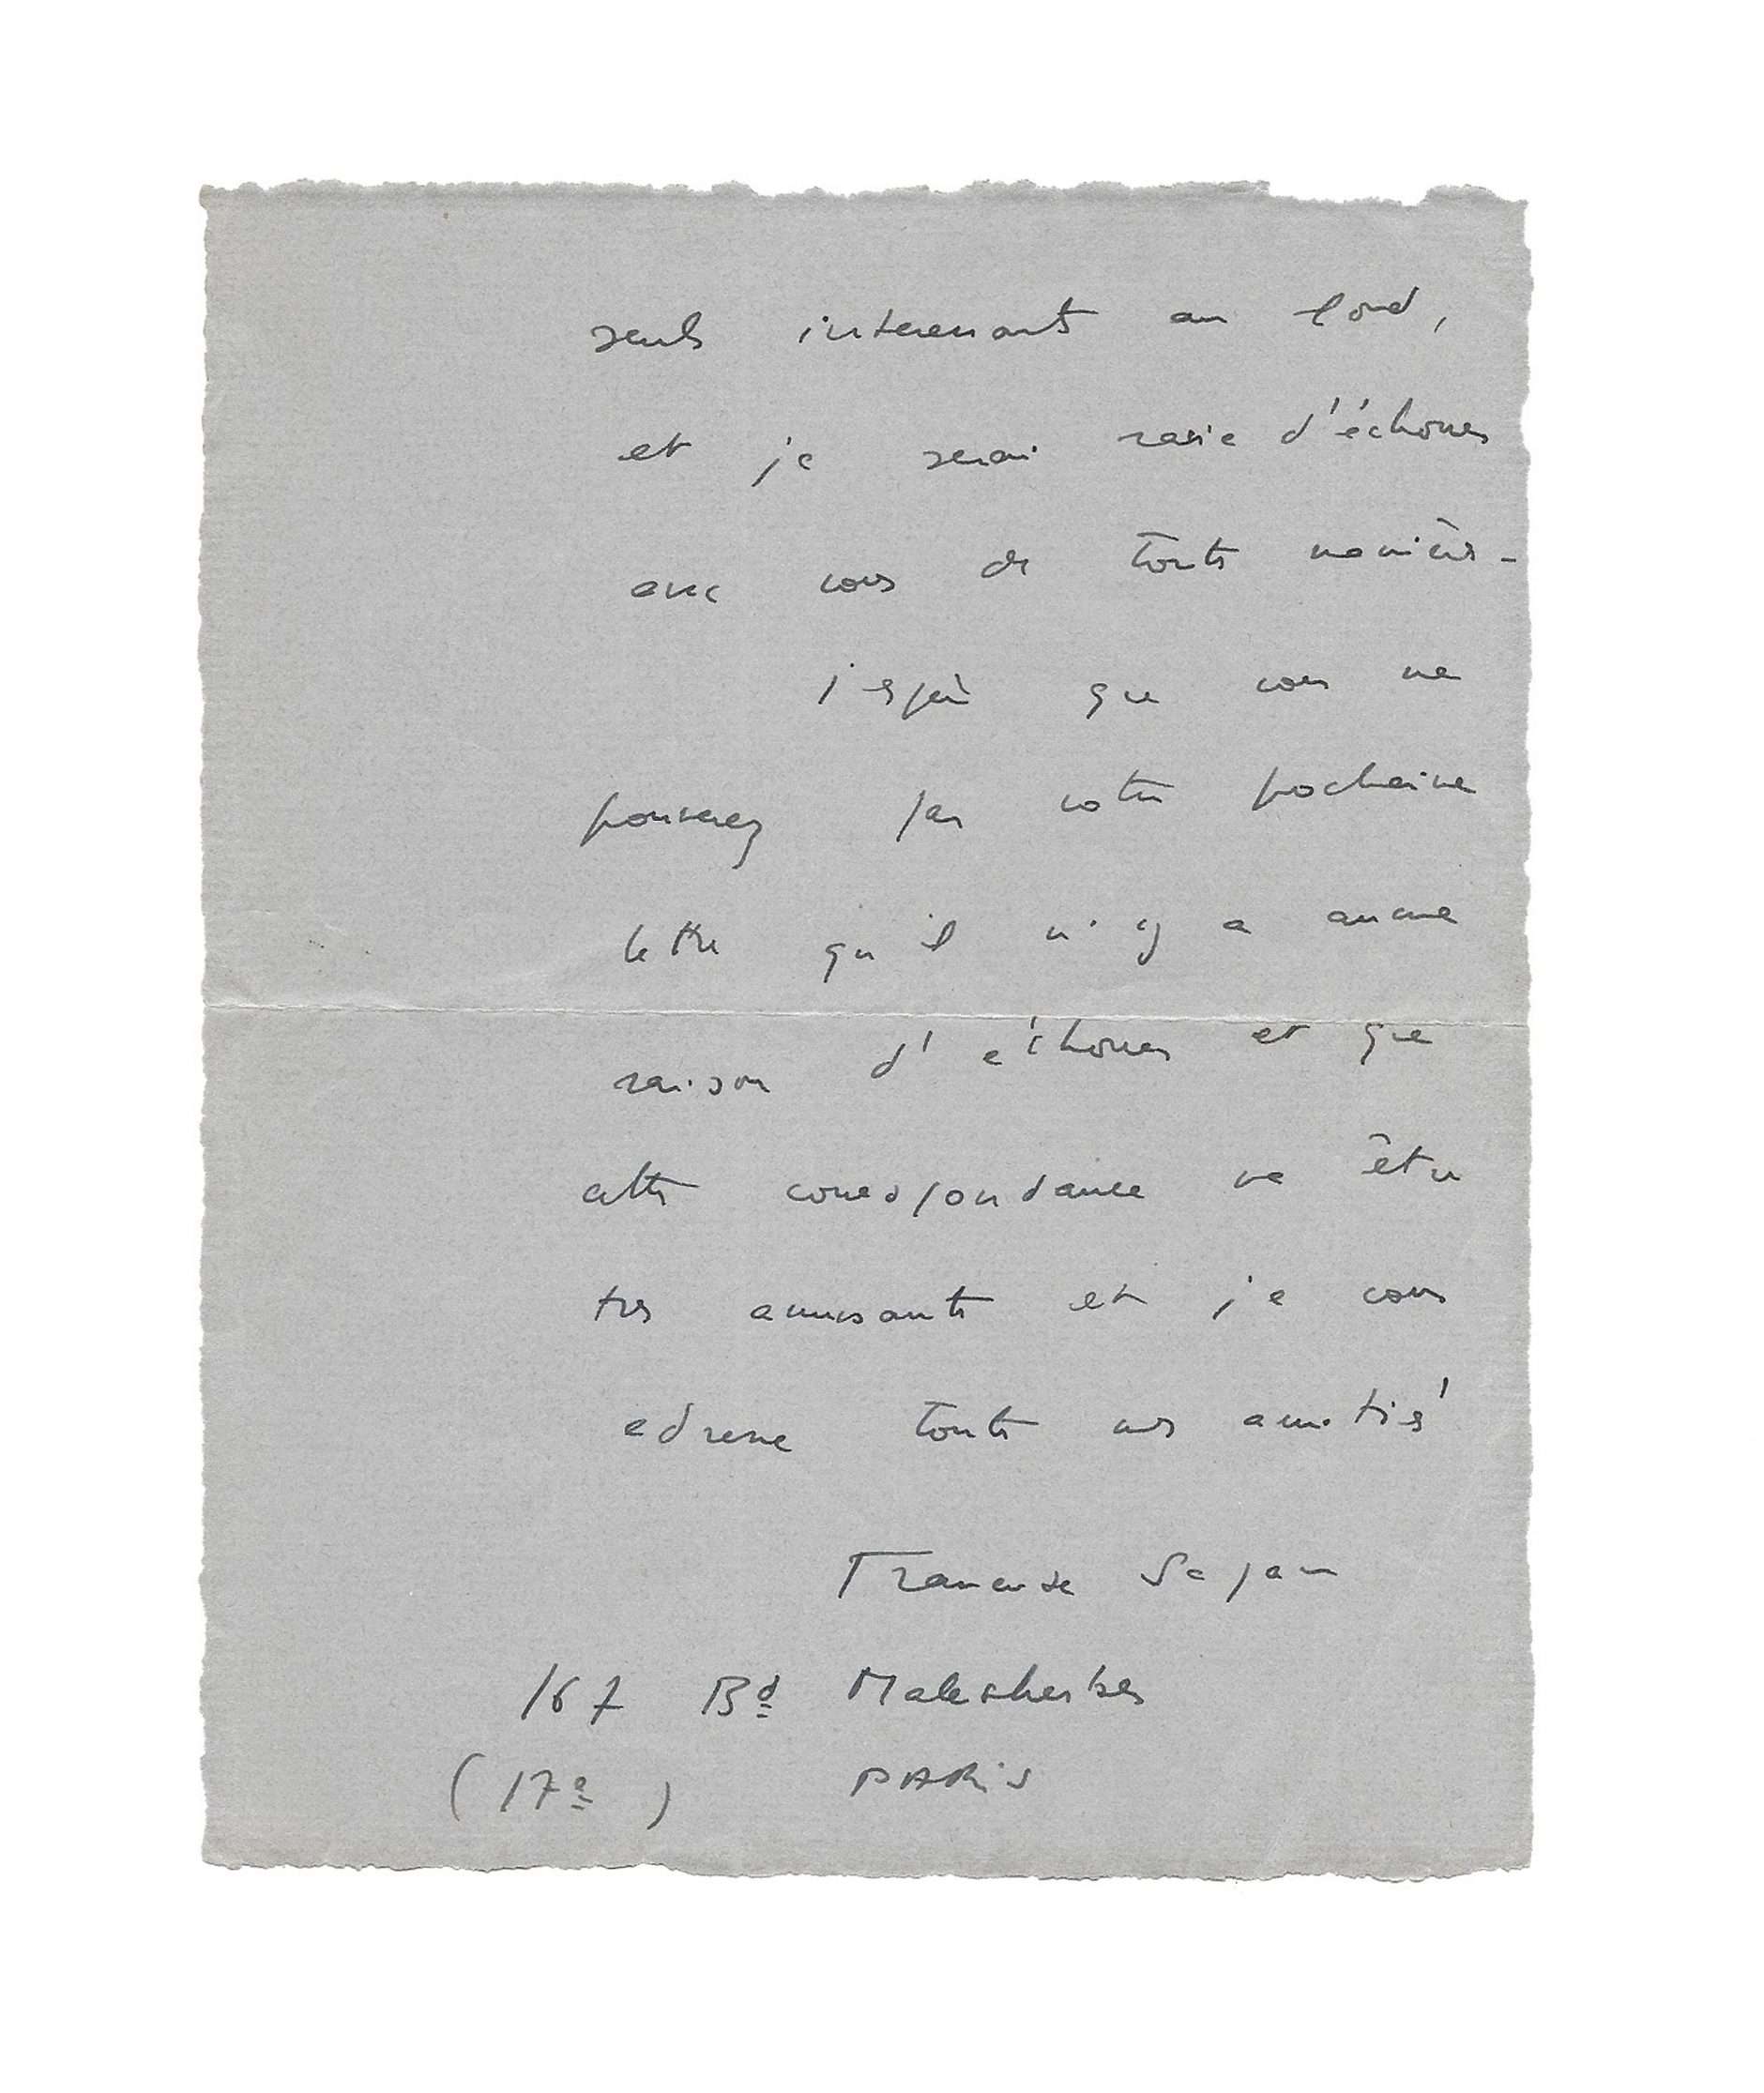 seuls intéressants au fond,
et je serai ravie d'échouer
avec vous de toute manière -
j'espère que vous me
prouverez par votre prochaine
lettre qu'il n'y a aucune
raison d'échouer et que
cette correspondance va être
très amusante et je vous
adresse toute mes amitiés
Françoise Sagan
167 Bd Malesherbes
(17e) PARIS